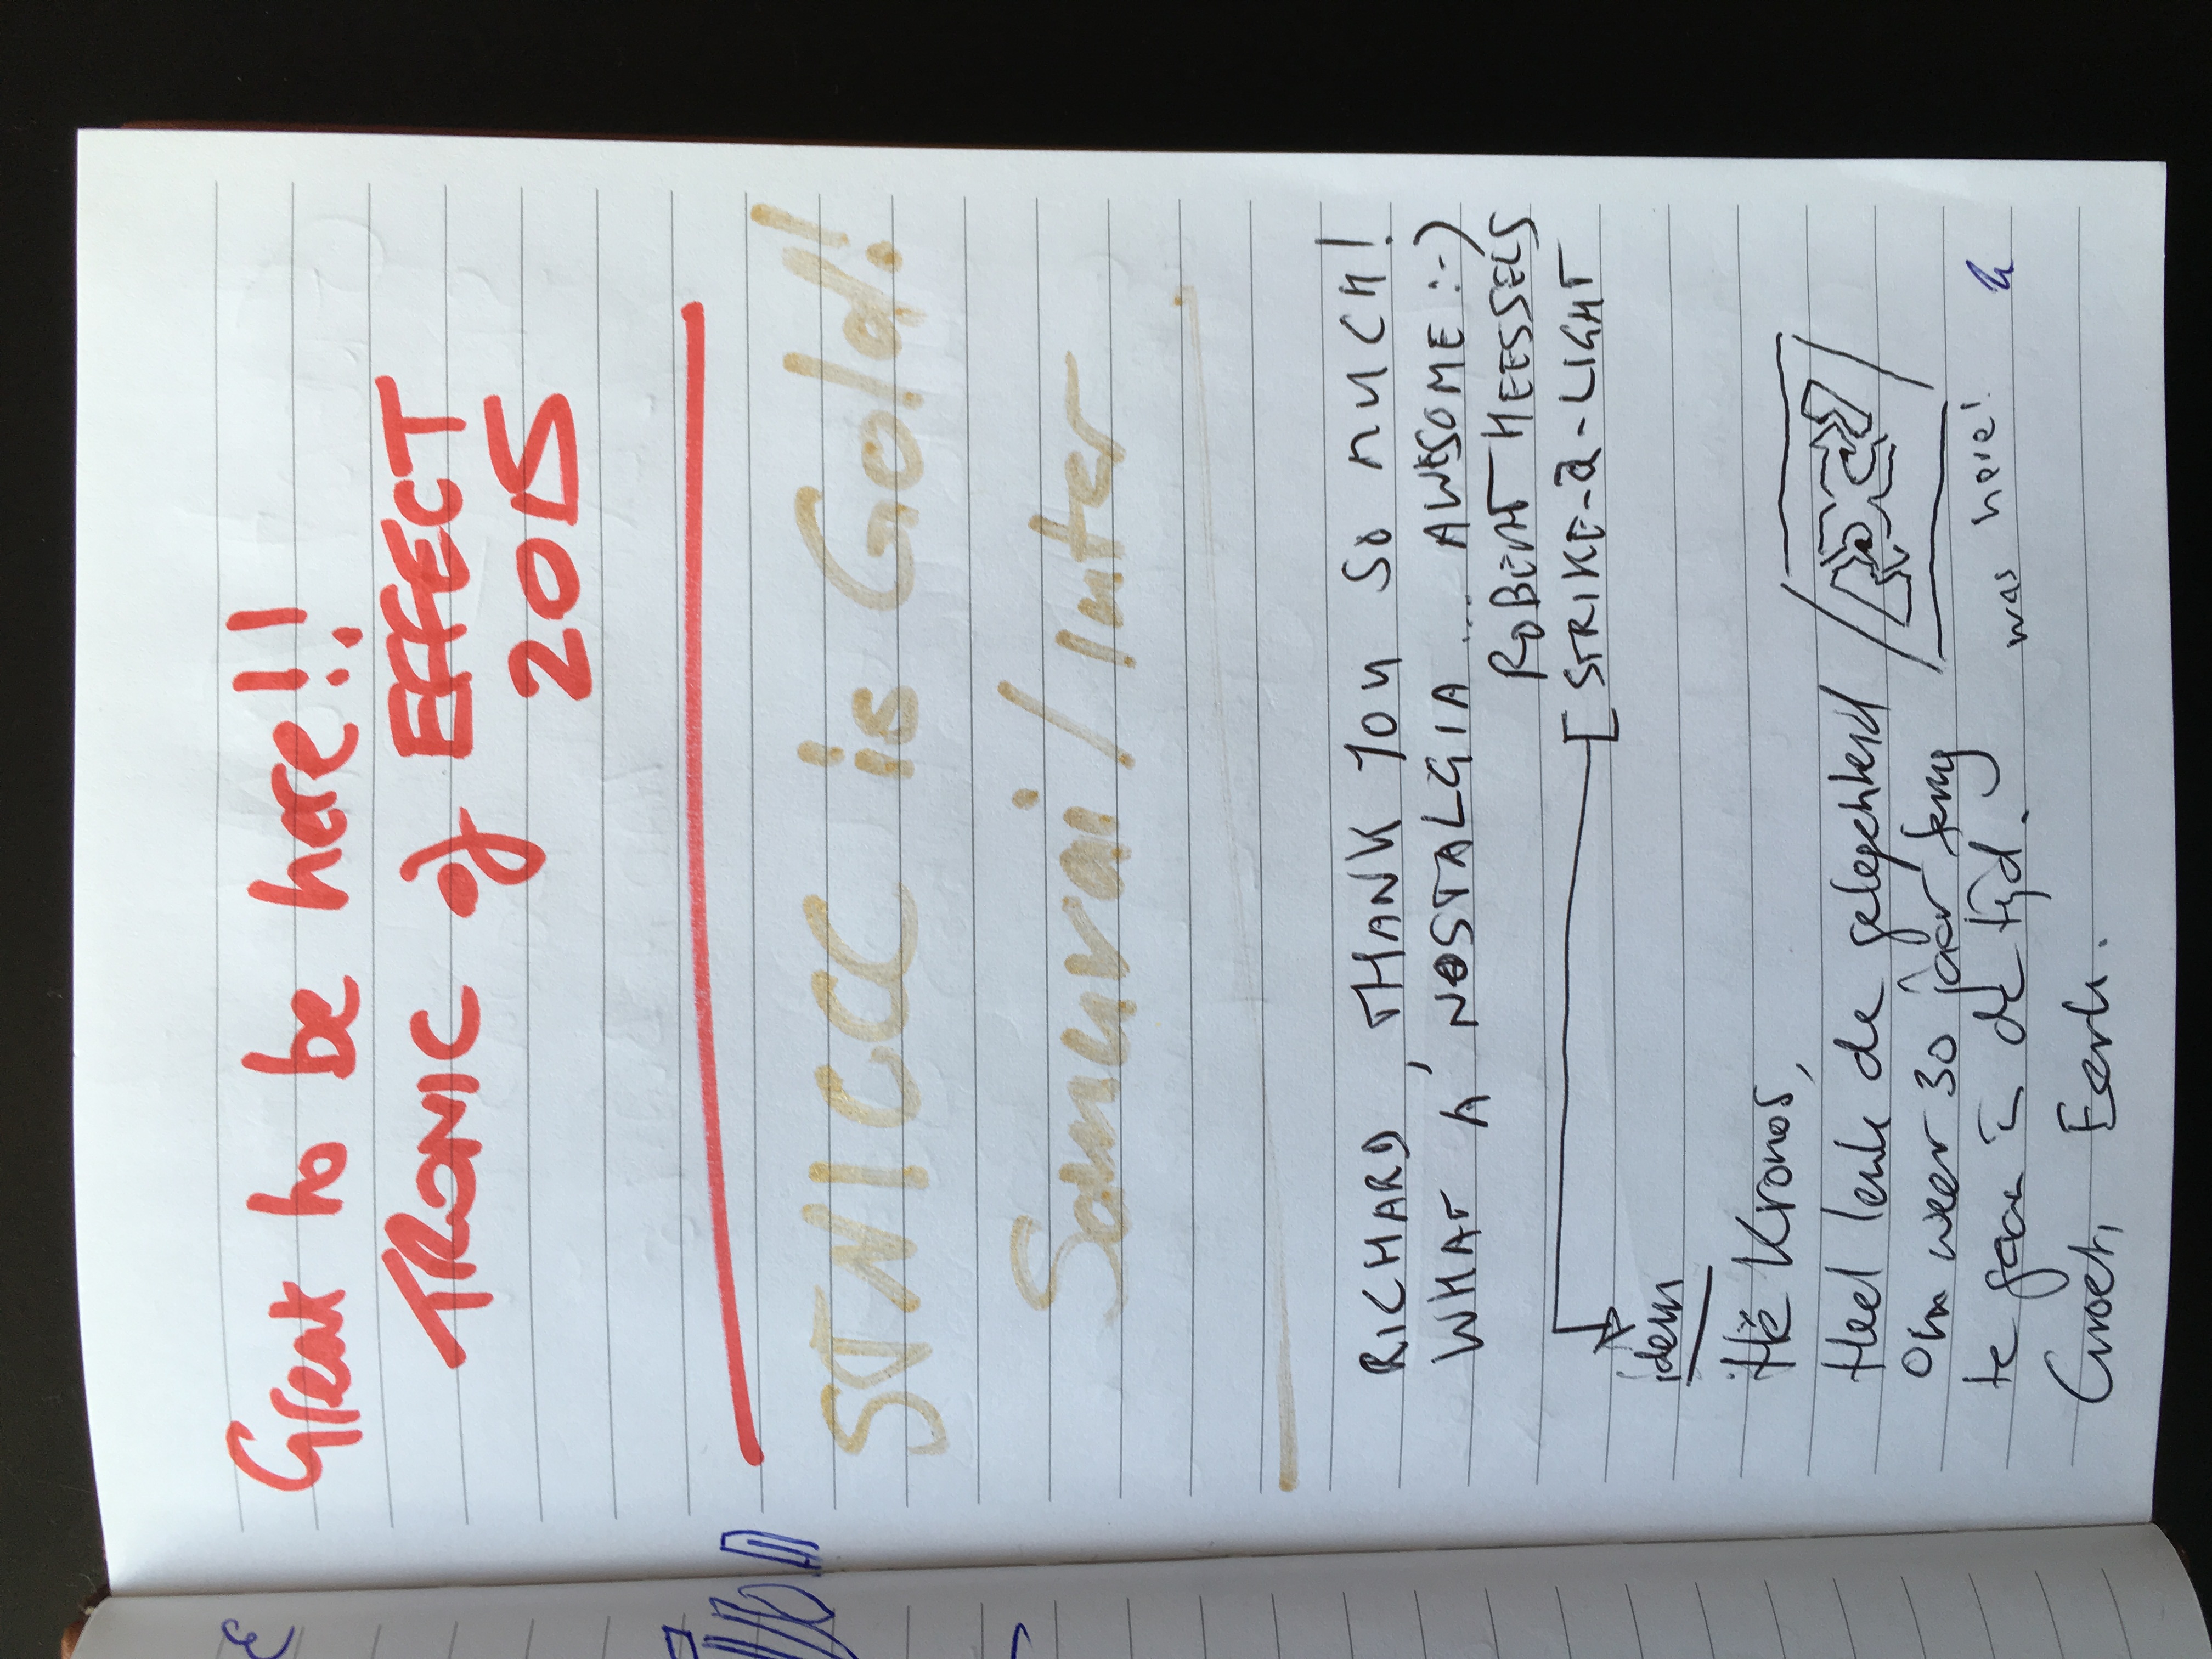 Great to be here!!
TRONIC of EFFECT
2015
STNICCC is Gold!
Samurai / Inter
RICHARD, THANK YOU SO MUCH!
WHAT A NOSTALGIA... AWESOME :-)
ROBERT MEESSELS
STRIKE-a-LIGHT
idem
Hé Kronos,
Heel leuk de gelegenheid
om weer 30 jaar terug
te gaan in de tijd.
Groet,
was here!